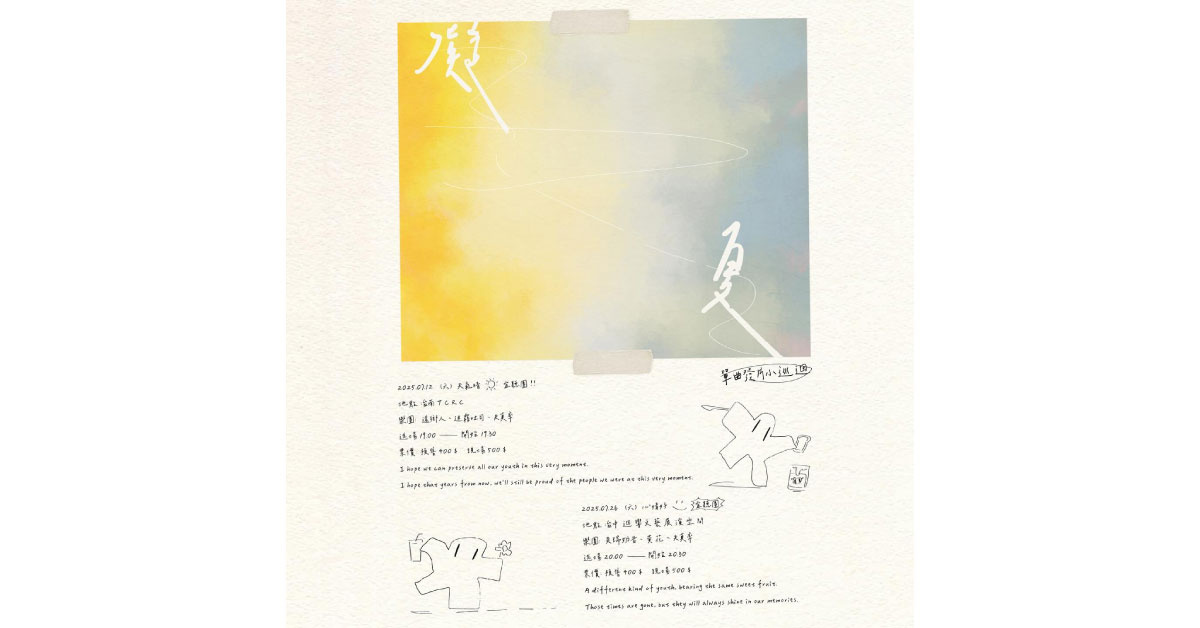 凝
夏
單曲發片小巡迴
2025.07.12 (六) 天氣晴 宜聽團!!
地點 台南 TCRC
樂團 遠街人、迷霧吐司、大夏季
進場 19:00 —— 開始 19:30
票價 預售 400$ 現場 500$
I hope we can preserve all our youth in this very moment.
I hope that years from now, we'll still be proud of the people we were at this very moment.
2025.07.26 (六) 心情好 宜聽團
地點 台中 迴響文藝展演空間
進場 20:00 —— 開始 20:30
票價 預售 400$ 現場 500$
A different kind of youth, bearing the same sweet fruit.
Those times are gone, but they will always shine in our memories.